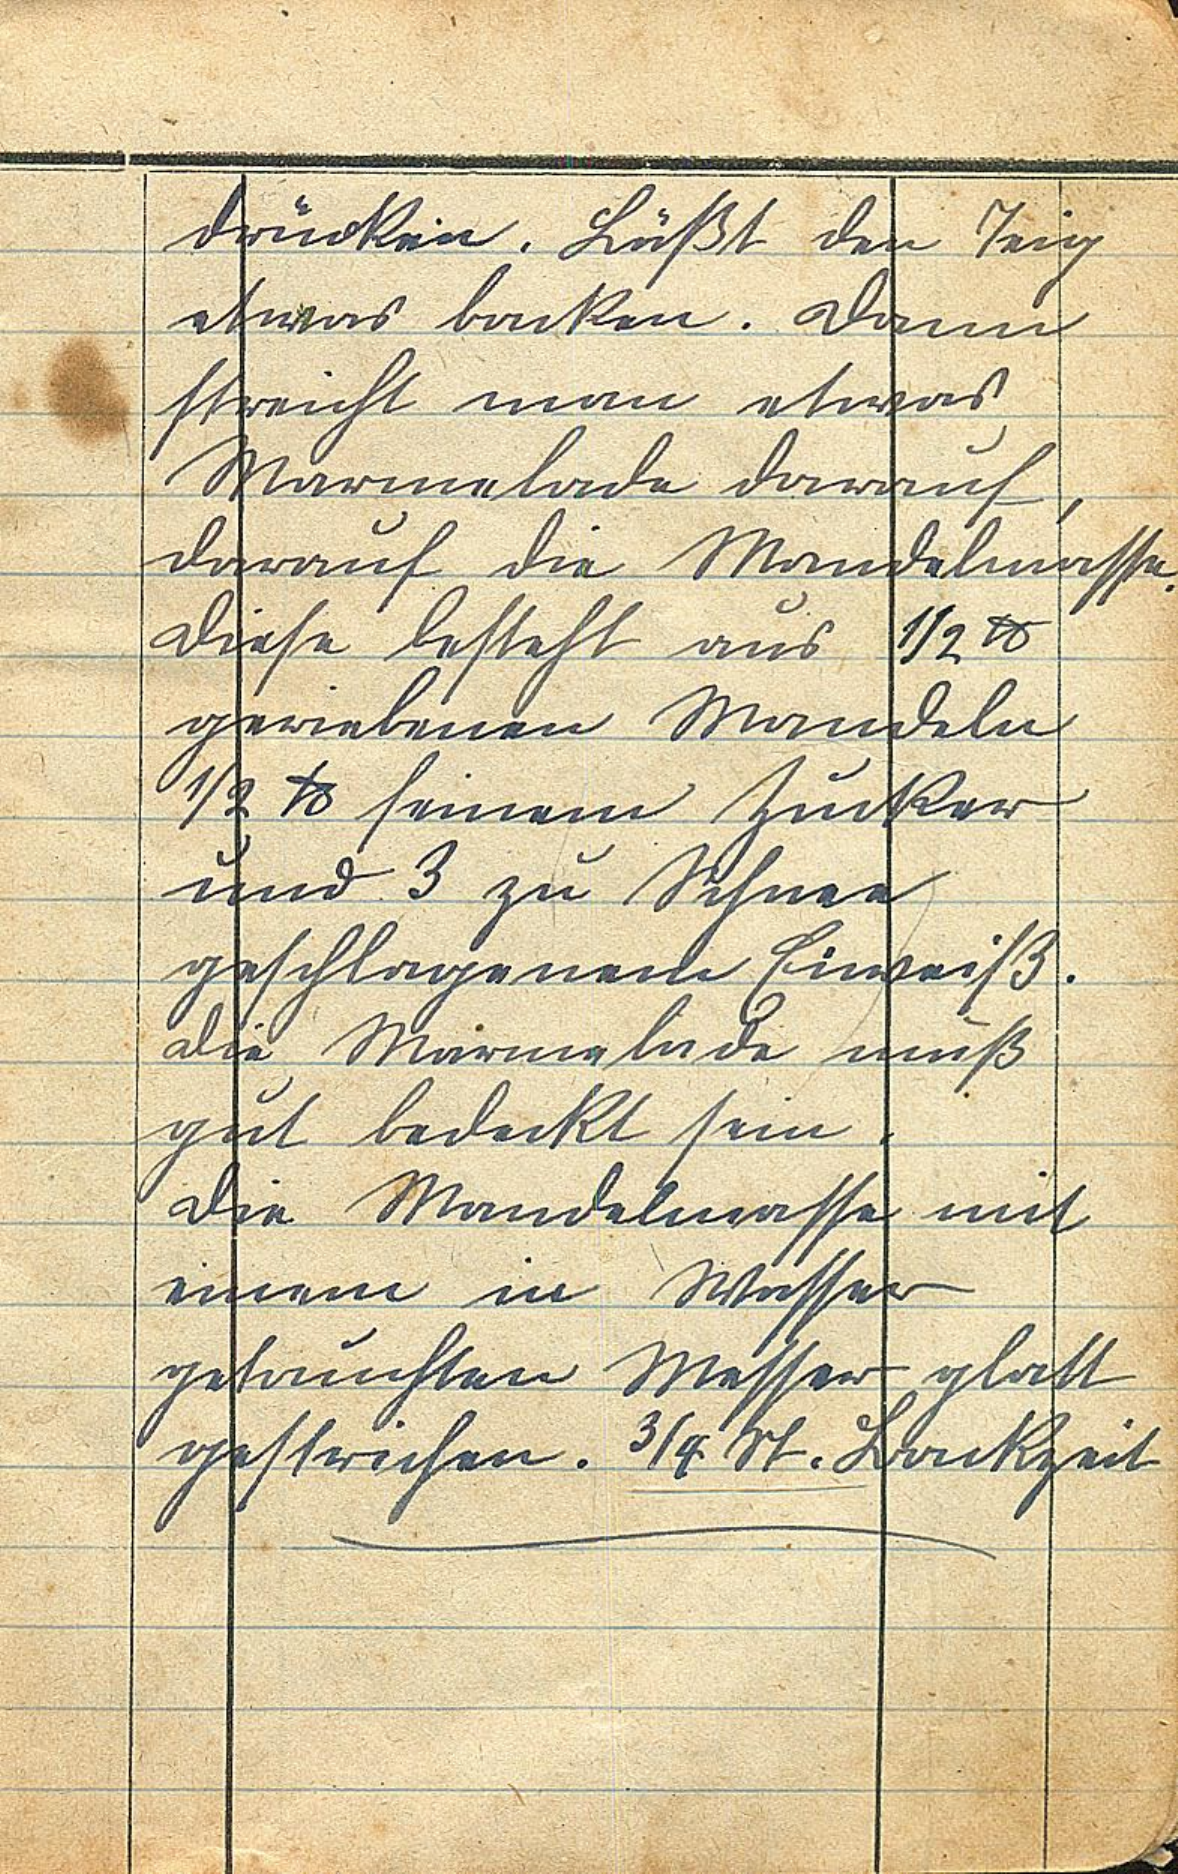 drücken. Läßt den Teig
etwas backen. Dann
streicht man etwas
Marmelade darauf,
darauf die Mandelmasse.
Diese besteht aus 1/2 ℔
geriebenen Mandeln
1/2 ℔ feinem Zucker
und 3 zu Schnee
geschlagenem Eiweiß.
Die Marmelade muß
gut bedeckt sein.
Die Mandelmasse mit
einem in Wasser
getauchten Messer glatt
gestrichen. 3/4 St. Backzeit